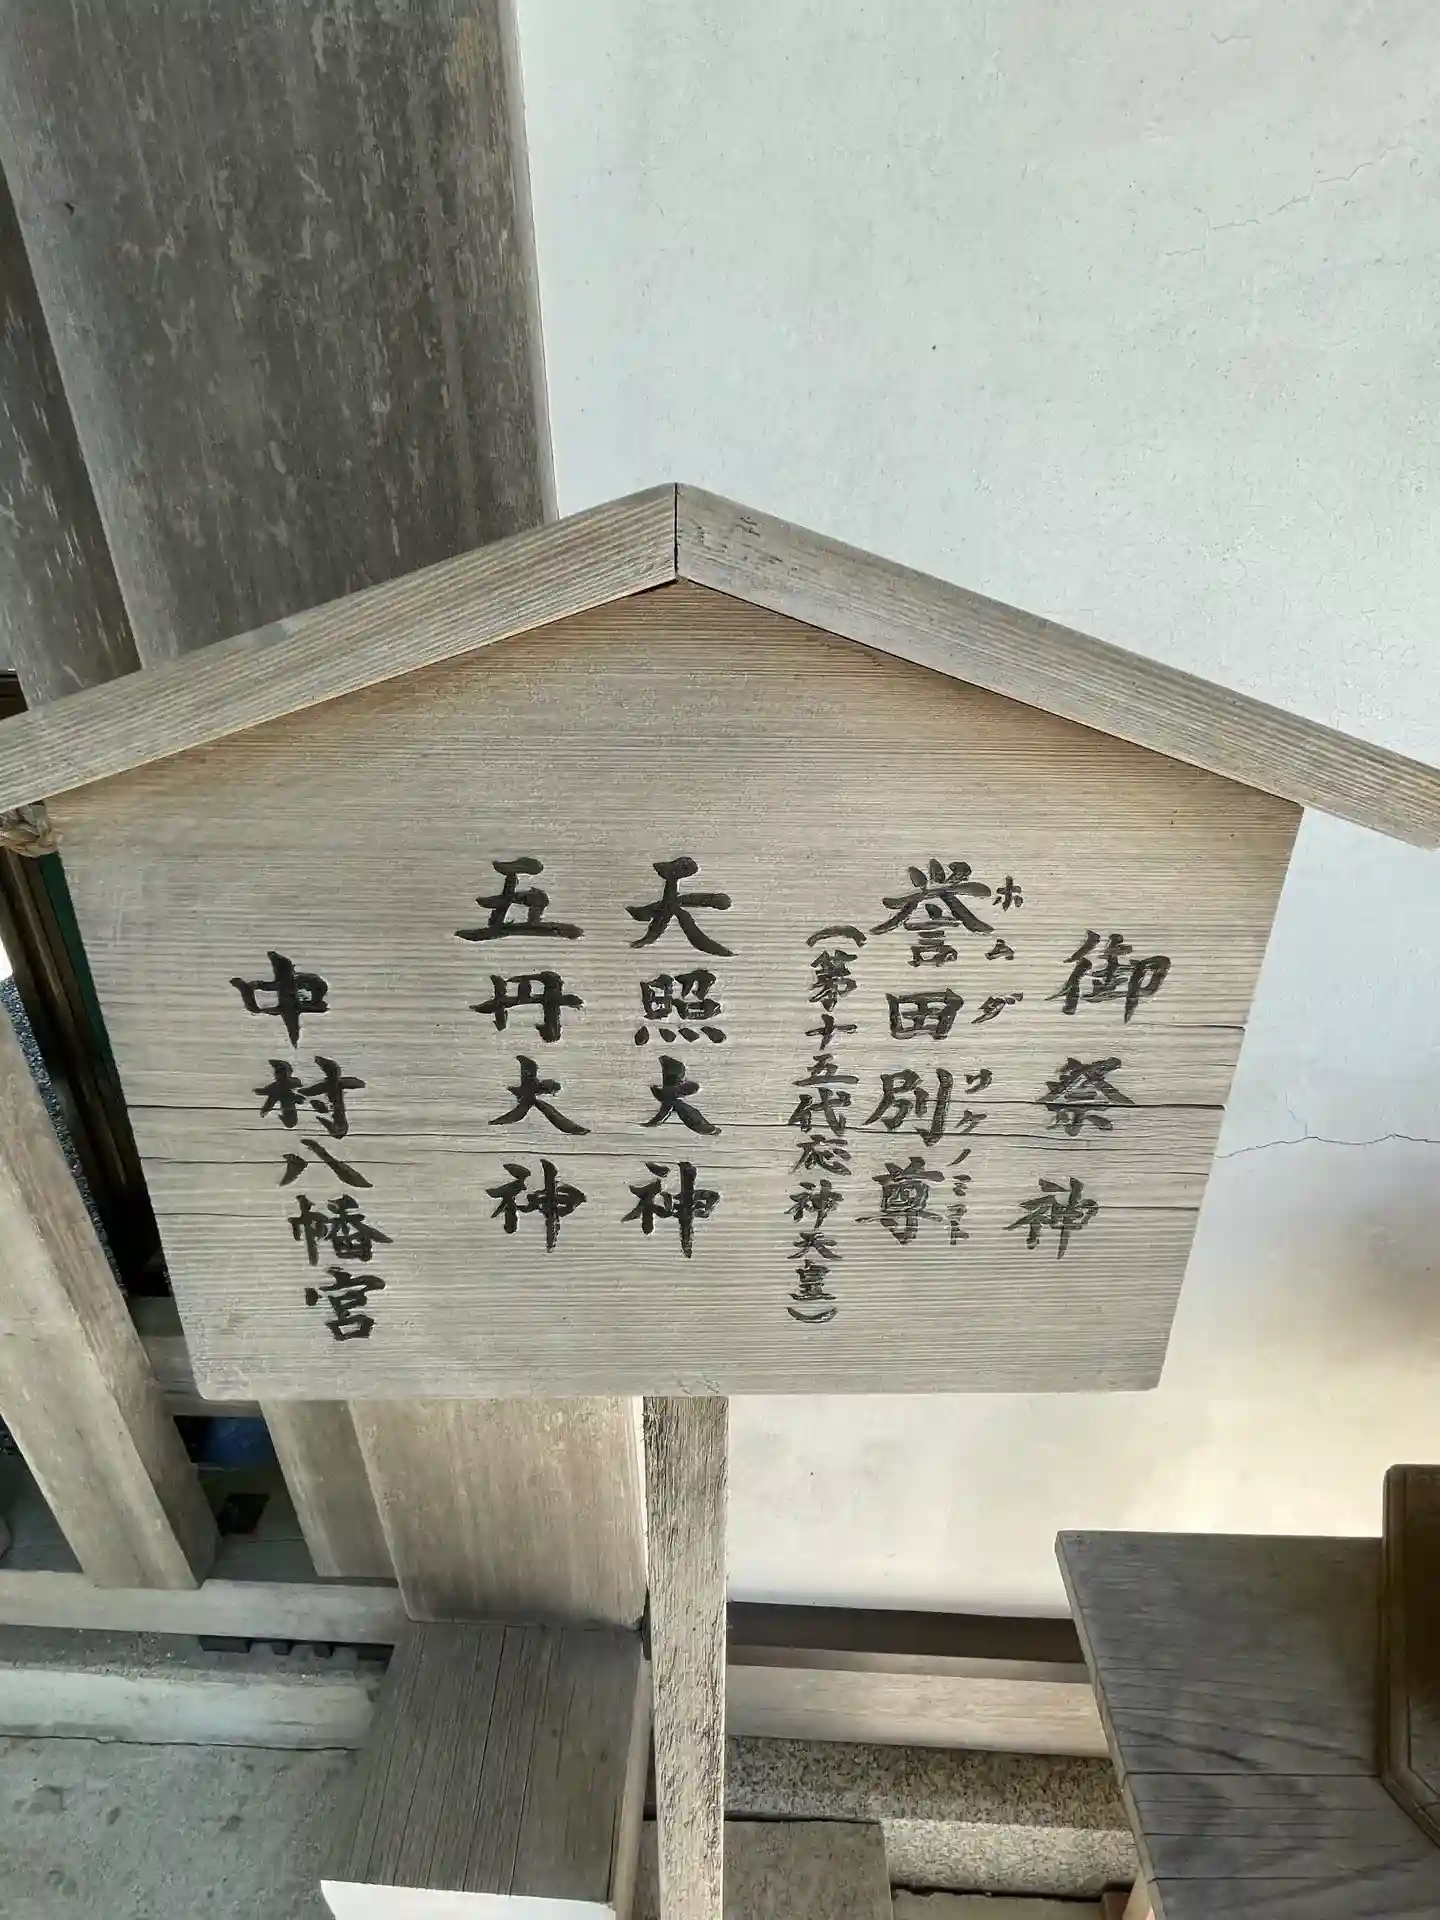 御祭神
誉田別尊
ホムダワケノミコト
（第十五代応神天皇）
天照大神
五丹大神
中村八幡宮